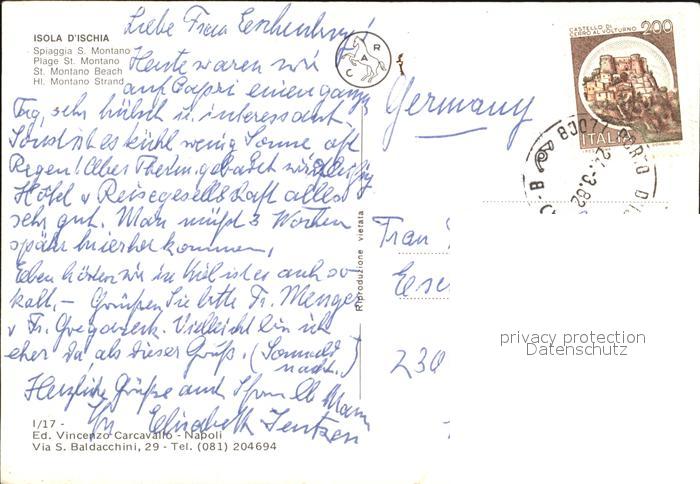 Liebe Frau
ISOLA D'ISCHIA
Spiaggia S. Montano
Plage St. Montano
St. Montano Beach
Hl. Montano Strand
Heute waren wir
auf Capri einen ganzen
Tag, sehr hübsch u. interessant.
Sonst ist es kühl wenig Sonne oft
Regen! Aber Therm. gebadet wird
Hotel u Reisegesellschaft alles
sehr gut. Man müßt 3 Wochen
später hierher kommen.
Eben hören wir in Kiel ist es auch so
kalt, – Grüßen Sie bitte Fr. Menge
u Fr. Vielleicht bin ich
eher da als dieser Gruß. (
nacht.)
Herzliche Grüße auch Mann
Ihre Elisabeth Jentzen
I/17 -
Ed. Vincenzo Carcavallo - Napoli
Via S. Baldacchini, 29 - Tel. (081) 204694
Riproduzione vietata
C A R
CASTELLO DI
CERRO AL VOLTURNO
200
ITALIA
24.-3.82
Germany
Frau
230
privacy protection
Datenschutz